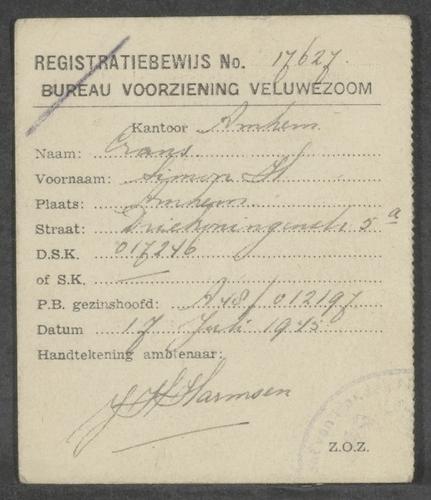 REGISTRATIEBEWIJS No. 17627.
BUREAU VOORZIENING VELUWEZOOM
Kantoor Arnhem
Naam: Crans.
Voornaam: Simon H
Plaats: Arnhem.
Straat: Driekoningenstr 5 a
D.S.K. 017246
of S.K. —
P.B. gezinshoofd: A 48/012197
Datum 17 Juli 1945
Handtekening ambtenaar:
J H Harmsen
Z.O.Z.